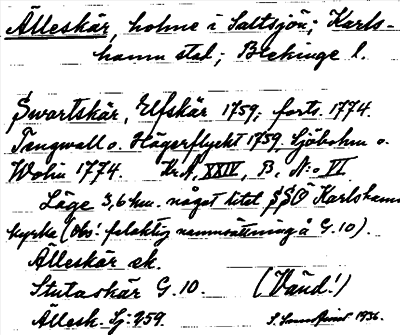 Älleskär, holme i Saltsjön; Karls-
hamn stad; Blekinge l.
Swartskär, Elfskär 1759; forts. 1774.
Tengwall o. Hägerflyckt 1759. Sjöbohm o.
Wolin 1774. Kr.A. XXIV, B, No VI
Läge 3,6 km. något litet SSO Karlshamn
kyrka (obs! felaktig namnsättning å G. 10).
Älleskär ek.
Stutaskär G. 10. (Vänd!)
Ällesk. Sj. 259. 1936.